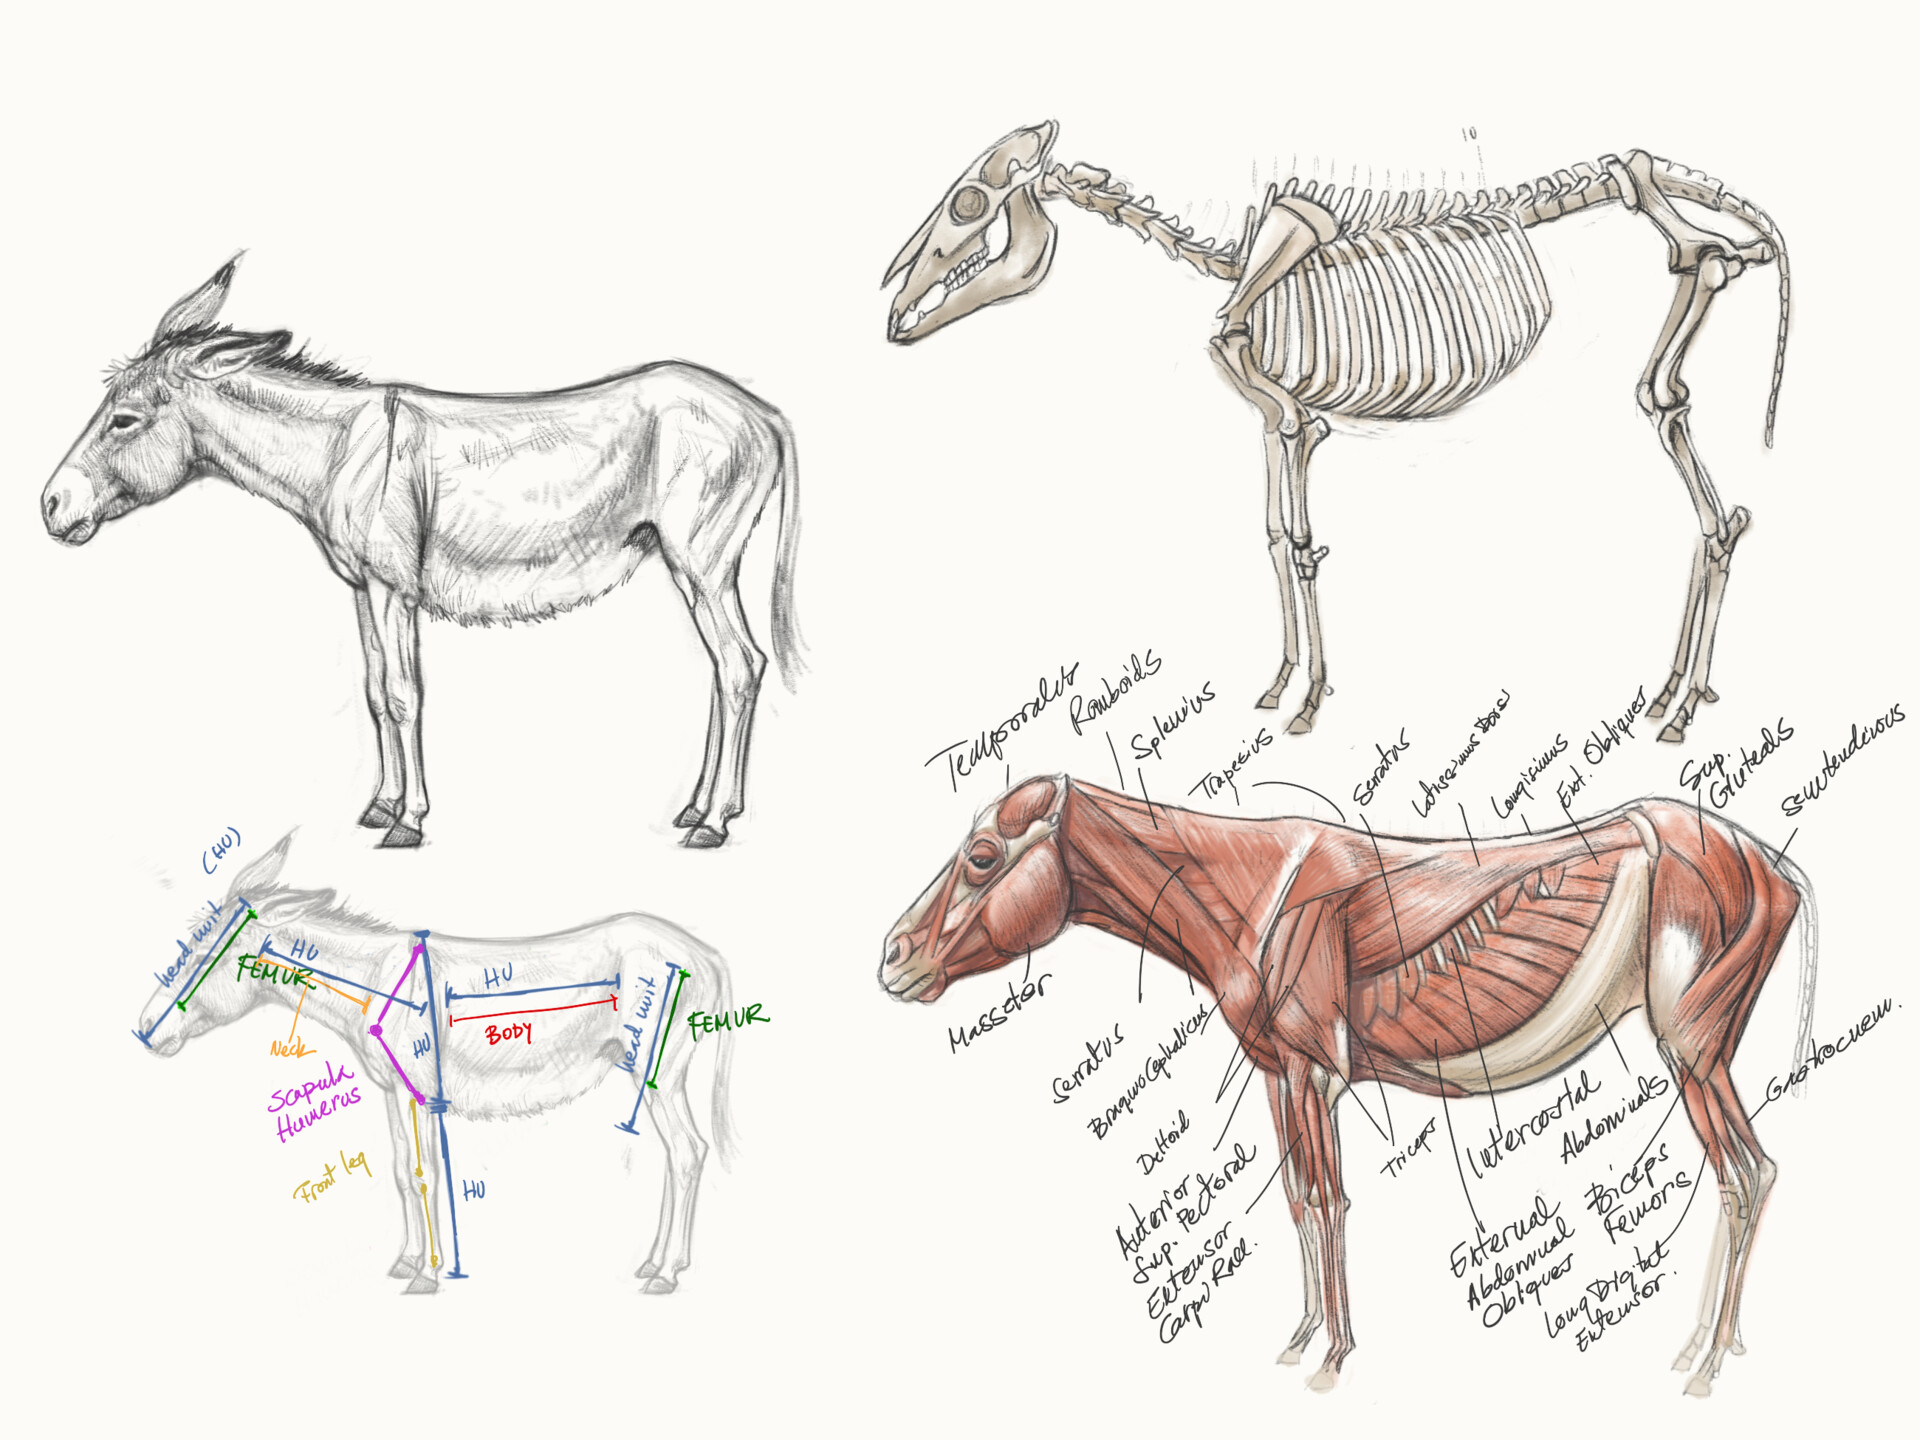 10
Temporalis
Romboids
Splenius
Trapecius
Serratus
Latissimus Dorsi
Longisimus
Ext. Obliques
Sup.
Gluteals
Semitendinous
Masseter
Serratus
Braquiocephalicus
Deltoid
Anterior
Sup. Pectoral
Extensor
Carpi Rad.
Triceps
Intercostal
Abdominals
External
Abdominal
Obliques
Biceps
Femoris
Long Digital
Extensor.
Gastrocnem.
(HU)
head unit
FEMUR
HU
Neck
Scapula
Humerus
Front leg
HU
HU
HU
BODY
head unit
FEMUR